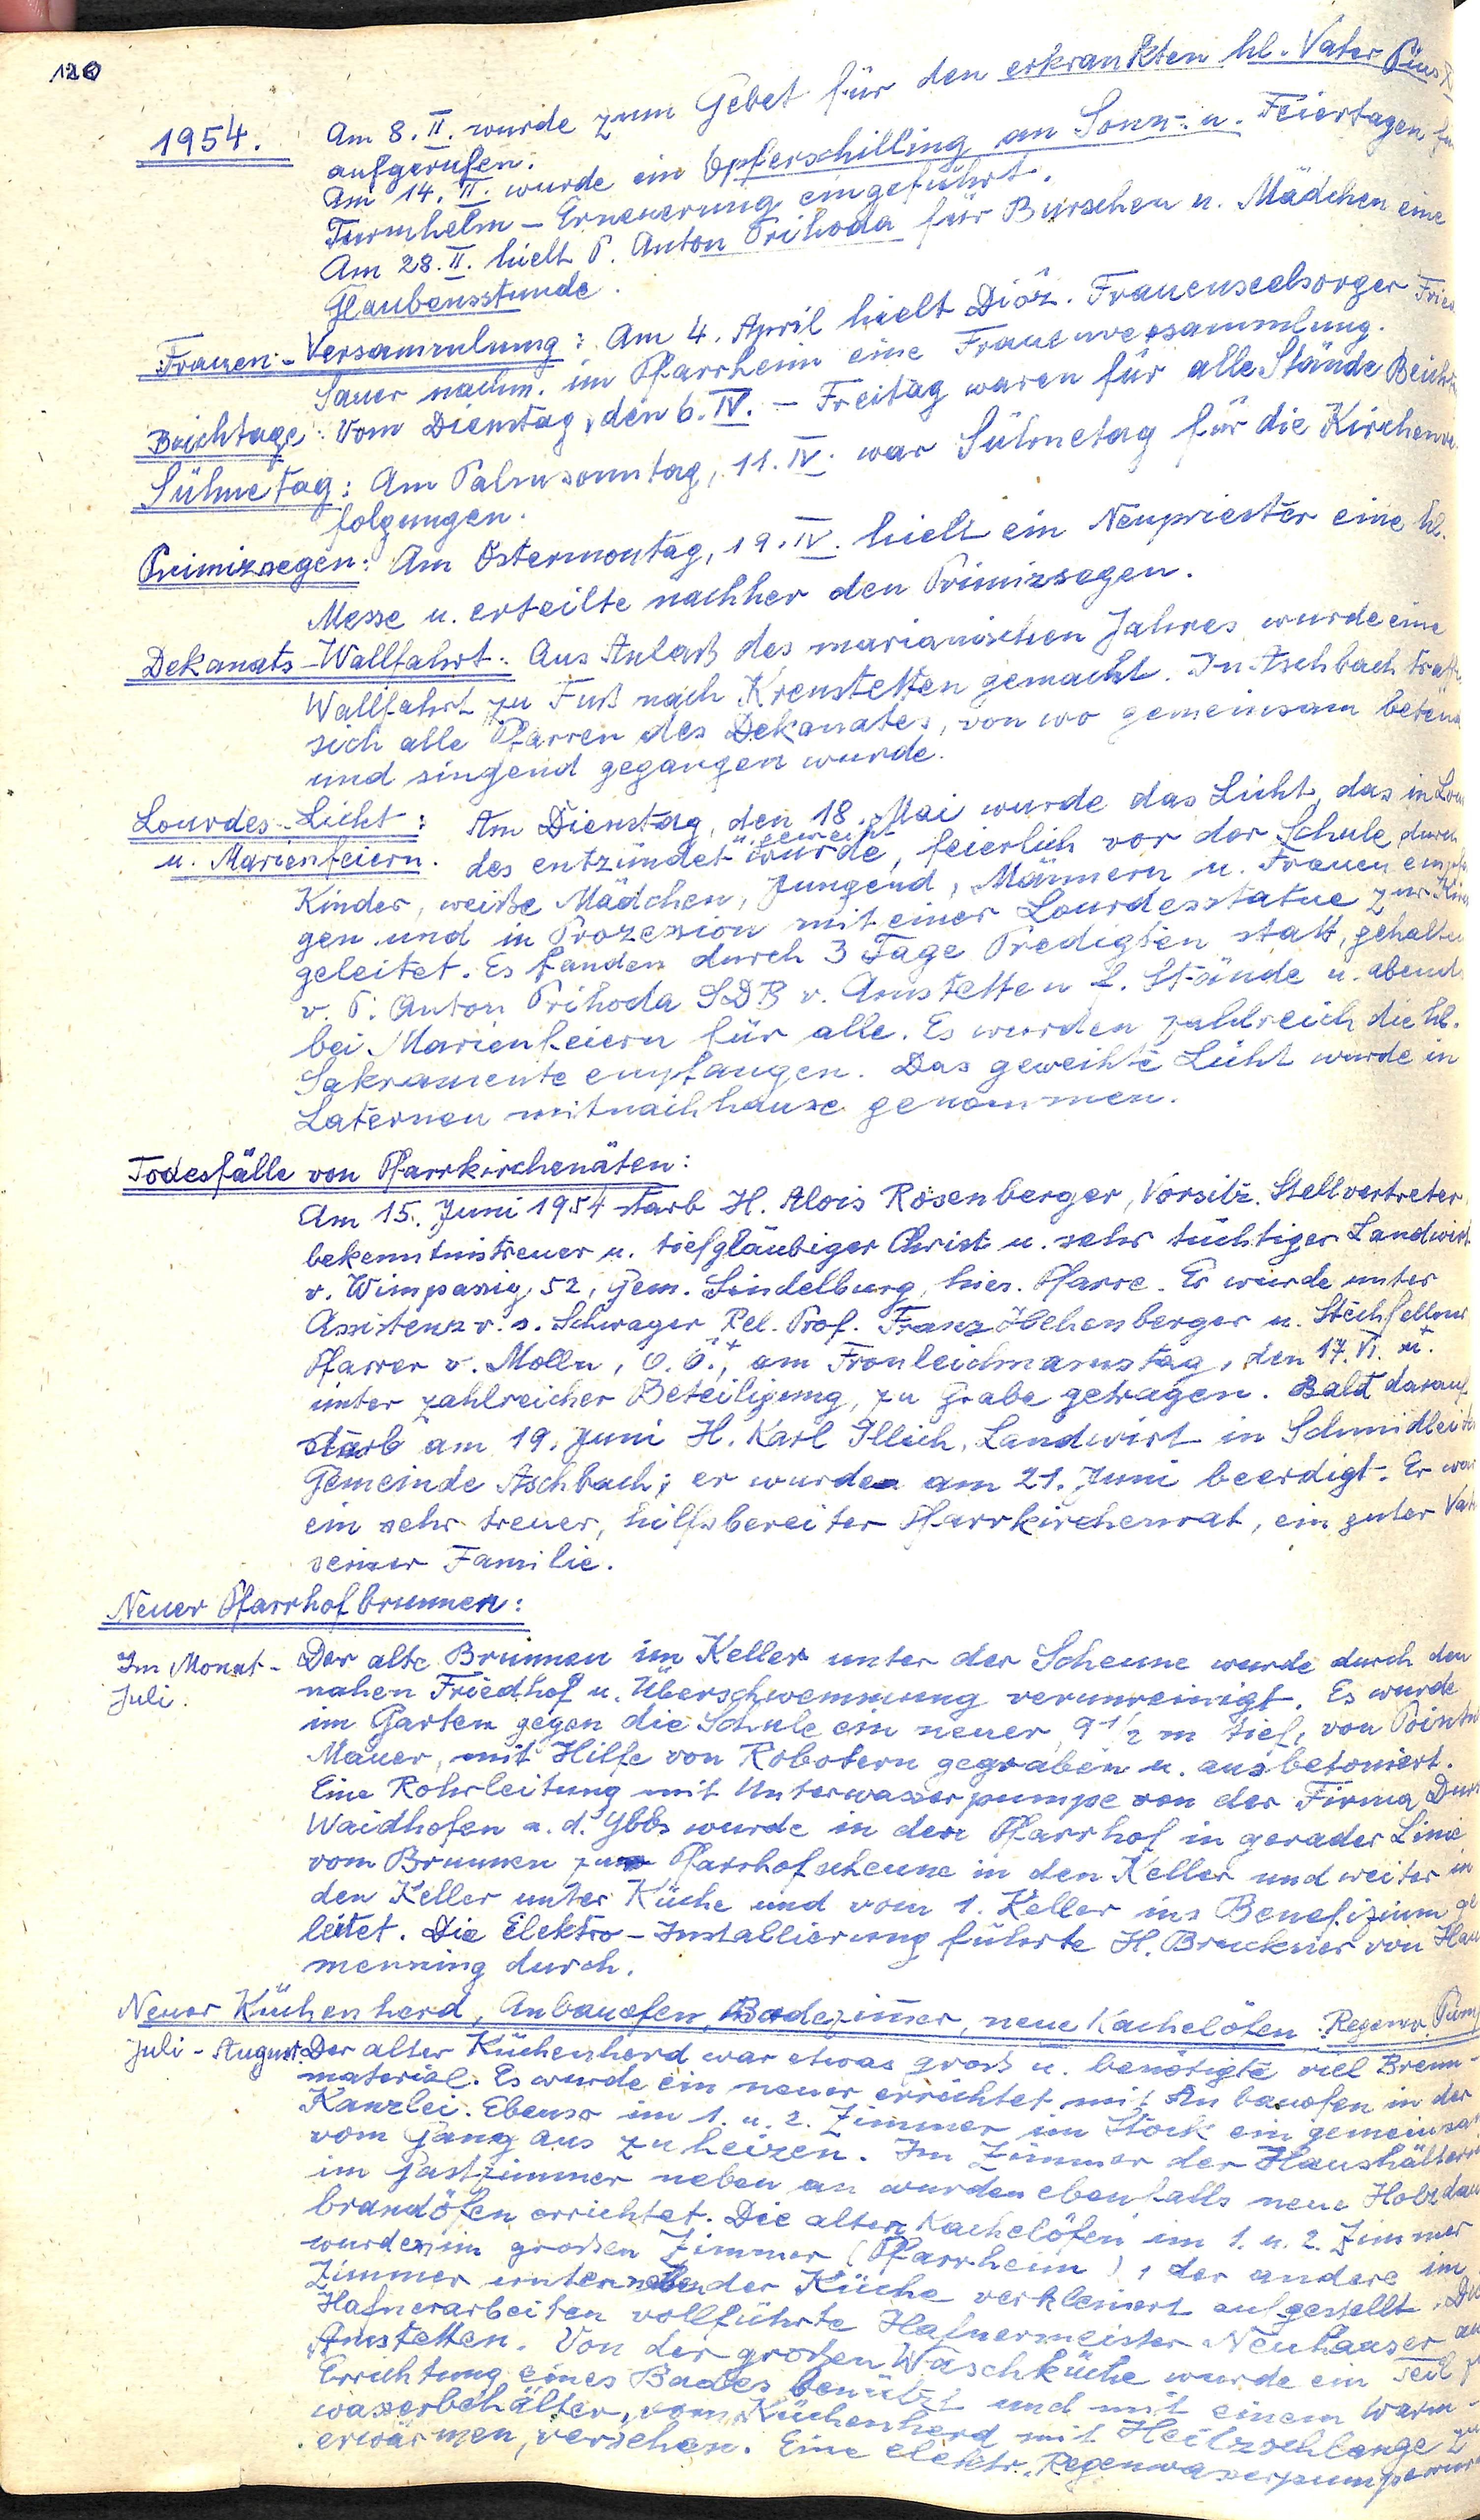 120
1954. Am 8. II. wurde zum Gebet für den erkrankten hl. Vater Pius
aufgerufen.
Am 14. II. wurde ein Opferschilling an Sonn- u. Feiertagen
Turmhelm-Erneuerung eingeführt.
Am 28. II. hielt P. Anton Prihoda für Burschen u. Mädchen eine
Glaubensstunde.
Frauen-Versammlung: Am 4. April hielt Diöz. Frauenseelsorger
Sauer nachm. im Pfarrheim eine Frauenversammlung.
Beichtage: Vom Dienstag, den 6. IV. - Freitag waren für alle Stände
Sühnetag: Am Palmsonntag, 11. IV. war Sühnetag für die
folgungen.
Primizsegen: Am Ostermontag, 19. IV. hielt ein Neupriester eine hl.
Messe u. erteilte nachher den Primizsegen.
Dekanats-Wallfahrt: Aus Anlaß des marianischen Jahres wurde eine
Wallfahrt zu Fuß nach Krenstetten gemacht. In Aschbach
sich alle Pfarren des Dekanates, von wo gemeinsam
und singend gegangen wurde.
Lourdes-Licht: Am Dienstag, den 18. Mai wurde das Licht, das in
u. Marienfeiern. des entzündet u. geweiht wurde, feierlich vor der Schule, durch
Kinder, weiße Mädchen, Jungend, Männern u. Frauen
gen und in Prozession mit einer Lourdesstatue zur
geleitet. Es fanden durch 3 Tage Predigten statt, gehalten
v. P. Anton Prihoda SDB v. Amstetten f. Stände u. abends
bei Marienfeiern für alle. Es wurden zahlreich die hl.
Sakramente empfangen. Das geweihte Licht wurde in
Laternen mitnachhause genommen.
Todesfälle von Pfarrkirchenäten:
Am 15. Juni 1954 starb H. Alois Rosenberger, Vorsitz. Stellvertreter
bekenntnistreuer u. tiefgläubiger Christ u. sehr tüchtiger Landwirt
v. Wimpassig, 52, Gem. Sindelburg, hies. Pfarre. Er wurde unter
Assistenz v. s. Schwager Rel. Prof. Franz u.
Pfarrer v. Molln, O.Ö., am Fronleichnamstag, den 17. VI.
unter zahlreicher Beteiligung, zu Grabe getragen. Bald darauf
starb am 19. Juni H. Karl Illich, Landwirt in
Gemeinde Aschbach; er wurde am 21. Juni beerdigt. Er war
ein sehr treuer, hilfsbereiter Pfarrkirchenrat, ein guter
seiner Familie.
Neuer Pfarrhofbrunnen:
Im Monat - Der alte Brunnen im Keller unter der Scheune wurde durch den
Juli. nahen Friedhof u. Überschwemmung verunreinigt. Es wurde
im Garten gegen die Schule ein neuer, 9 1/2 m tief, von
Mauer, mit Hilfe von Robotern gegraben u. ausbetoniert.
Eine Rohrleitung mit Unterwasserpumpe von der Firma
Waidhofen a. d. Ybbs wurde in den Pfarrhof in gerader Linie
vom Brunnen zur Pfarrhofscheune in den Keller und weiter in
den Keller unter Küche und vom 1. Keller ins Benefizium ge
leitet. Die Elektro-Installierung führte H. Bruckner von
menning durch.
Neuer Küchenherd, Anbauofen, Badezimmer, neue Kachelöfen. Regenw.
Juli - August. Der alter Küchenherd war etwas groß u. benötigte viel Brenn-
material. Es wurde ein neuer errichtet mit Anbauofen in der
Kanzlei. Ebenso im 1. u. 2. Zimmer im Stock ein
vom Gang aus zu heizen. Im Zimmer der
im Gastzimmer neben an wurden ebenfalls neue
brandöfen errichtet. Die alten Kachelöfen im 1. u. 2. Zimmer
wurden im großen Zimmer (Pfarrheim), der andere im
Zimmer unter der Küche verkleinert aufgestellt.
Hafnerarbeiten vollführte Hafnermeister Neuhauser
Amstetten. Von der großen Waschküche wurde ein Teil
Errichtung eines Bades benützt und mit einem Warm-
wasserbehälter, vom Küchenherd mit Heitzschlange
erwärmen, versehen. Eine elektr. Regenwasserpumpe